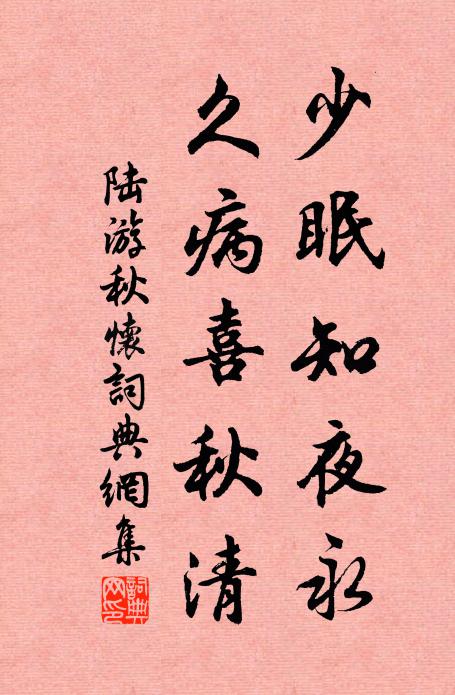 少眠知夜永
久病喜秋清
陆游秋懷詞典網集
詞典網印